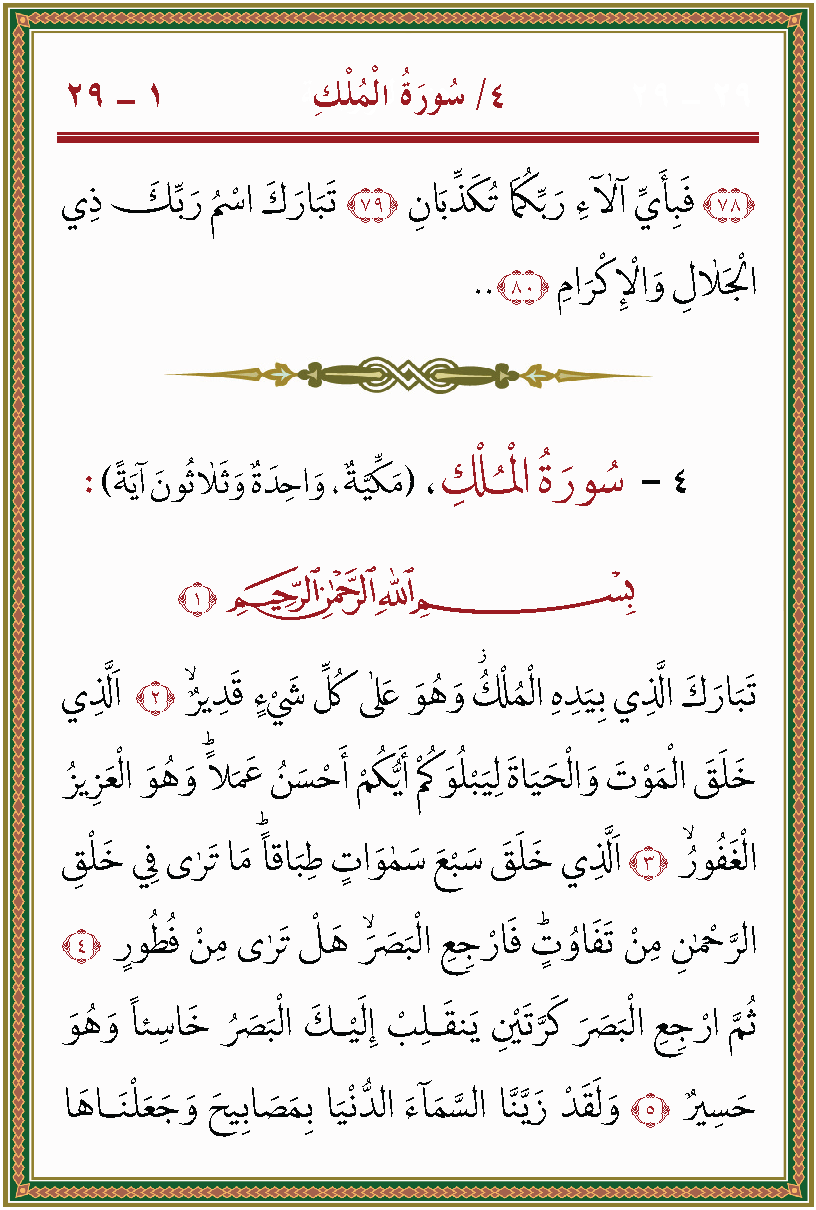 ٤/ سُورَةُ الْمُلْكِ ١ - ٢٩
﴿٧٨﴾ فَبِأَيِّ آلَاۤءِ رَبِّكُمَا تُكَذِّبَانِ ﴿٧٩﴾ تَبَارَكَ اسْمُ رَبِّكَ ذِي
الْجَلَالِ وَالْإِكْرَامِ ﴿٨٠﴾..
٤ - سُورَةُ الْمُلْكِ، (مَكِّيَّةٌ، وَاحِدَةٌ وَثَلَاثُونَ آيَةً):
بِسْمِ ٱللَّهِ ٱلرَّحْمَٰنِ ٱلرَّحِيمِ ﴿١﴾
تَبَارَكَ الَّذِي بِيَدِهِ الْمُلْكُ ز وَهُوَ عَلٰى كُلِّ شَيْءٍ قَدِيرٌ ۙ ﴿٢﴾ اَلَّذِي
خَلَقَ الْمَوْتَ وَالْحَيَاةَ لِيَبْلُوَكُمْ أَيُّكُمْ أَحْسَنُ عَمَلاً ؕ وَهُوَ الْعَزِيزُ
الْغَفُورُ ۙ ﴿٣﴾ اَلَّذِي خَلَقَ سَبْعَ سَمٰوَاتٍ طِبَاقاً ؕ مَا تَرٰى فِي خَلْقِ
الرَّحْمٰنِ مِنْ تَفَاوُتٍ ؕ فَارْجِعِ الْبَصَرَ ۙ هَلْ تَرٰى مِنْ فُطُورٍ ﴿٤﴾
ثُمَّ ارْجِعِ الْبَصَرَ كَرَّتَيْنِ يَنقَلِبْ إِلَيْكَ الْبَصَرُ خَاسِئاً وَهُوَ
حَسِيرٌ ﴿٥﴾ وَلَقَدْ زَيَّنَّا السَّمَآءَ الدُّنْيَا بِمَصَابِيحَ وَجَعَلْنَاهَا